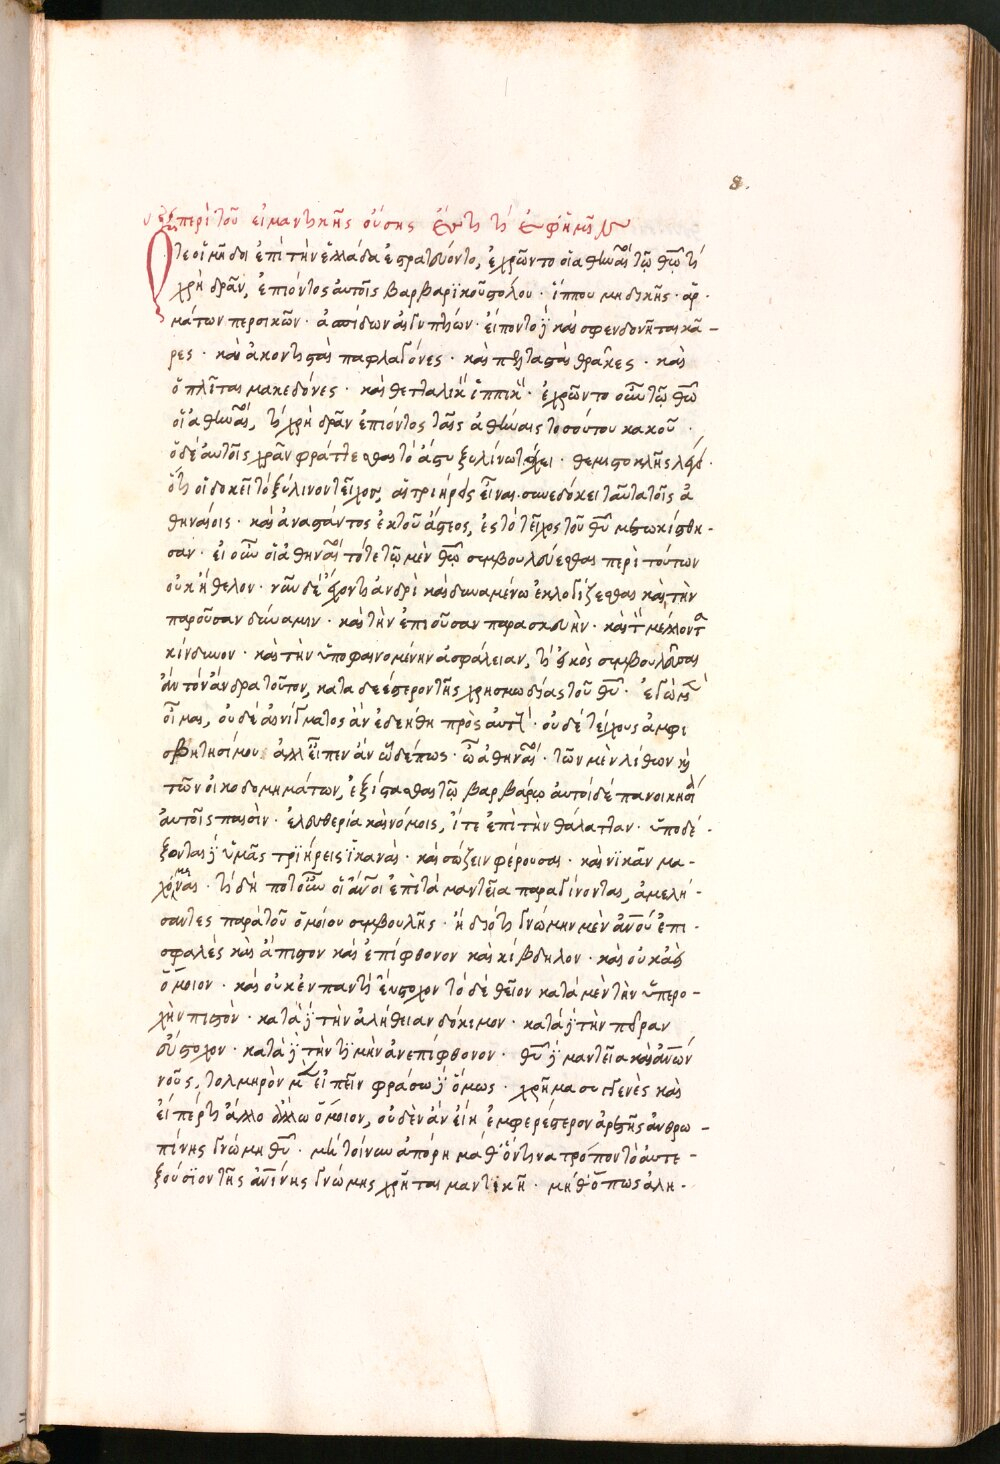 8.
περὶ τοῦ εἰ μαντικῆς οὔσης ἔστι τι ἐφ' ἡμῖν
Ὅτε οἱ μῆδοι ἐπὶ τὴν ἑλλάδα ἐστρατεύοντο, ἐχρῶντο οἱ ἀθηναῖοι τῷ θεῷ τί
χρὴ δρᾶν, ἐπιόντος αὐτοῖς βαρβαρικοῦ στόλου · ἵππου μηδικῆς · ἁρ ·
μάτων περσικῶν · ἀσπίδων αἰγυπτίων · εἵποντο δὲ καὶ σφενδονῆται κᾶ -
ρες · καὶ ἀκοντισταὶ παφλαγόνες · καὶ πελτασταὶ θρᾶκες · καὶ
ὁπλῖται μακεδόνες · καὶ θετταλικὴ ἱππικὴ · ἐχρῶντο οὖν τῷ θεῷ
οἱ ἀθηναῖοι, τί χρὴ δρᾶν ἐπιόντος ταῖς ἀθήναις τοσούτου κακοῦ ·
ὁ δὲ αὐτοῖς χρᾶν φράττεσθαι τὸ ἄστυ ξυλίνῳ τείχει · θεμιστοκλῆς λέγει ·
ὅτι οἱ δοκεῖ τὸ ξύλινον τεῖχος, αἱ τριήρεις εἶναι · συνεδόκει ταῦτα τοῖς ἀ
θηναίοις · καὶ ἀναστάντες ἐκ τοῦ ἄστεος, ἐς τὸ τεῖχος τοῦ θεοῦ μετῳκίσθη -
σαν · εἰ οὖν οἱ ἀθηναῖοι τότε τῷ μὲν θεῷ συμβουλεύεσθαι περὶ τούτων
οὐκ ἤθελον · νοῦν δὲ ἔχοντι ἀνδρὶ καὶ δυναμένῳ ἐκλογίζεσθαι καὶ τὴν
παροῦσαν δύναμιν · καὶ τὴν ἐπιοῦσαν παρασκευὴν · καὶ τὸν μέλλοντα
κίνδυνον · καὶ τὴν ὑποφαινομένην ἀσφάλειαν, τί εἰκὸς συμβουλεῦσαι
ἂν τὸν ἄνδρα τοῦτον, καταδεέστερον τῆς χρησμῳδίας τοῦ θεοῦ · ἐγὼ μὲν
οἶμαι, οὐδὲ αἰνίγματος ἂν ἐδεήθη πρὸς αὐτοὺς · οὐδὲ τείχους ἀμφι
σβητησίμου · ἀλλ' εἶπεν ἂν ὧδέ πως · ὦ ἀθηναῖοι · τῶν μὲν λίθων καὶ
τῶν οἰκοδομημάτων, ἐξίστασθαι τῷ βαρβάρῳ αὐτοὶ δὲ πανοικησίᾳ
αὐτοῖς παισὶν · ἐλευθερίᾳ καὶ νόμοις, ἴτε ἐπὶ τὴν θάλατταν · ὑποδέ -
ξονται δὲ ὑμᾶς τριήρεις ἱκαναὶ · καὶ σώζειν φέρουσαι · καὶ νικᾶν μα -
χόμεναι · τί δή ποτ' οὖν οἱ ἄνθρωποι ἐπὶ τὰ μαντεῖα παραγίνονται, ἀμελή -
σαντες παρὰ τοῦ ὁμοίου συμβουλῆς · ἢ διότι γνώμην μὲν ἀνθρώπου ἐπι -
σφαλὲς καὶ ἄπιστον καὶ ἐπίφθονον καὶ κίβδηλον · καὶ οὐκ ἀεὶ
ὅμοιον · καὶ οὐκ ἐν παντὶ εὔστοχον τὸ δὲ θεῖον κατὰ μὲν τὴν ὑπερο -
χὴν πιστὸν · κατὰ δὲ τὴν ἀλήθειαν δόκιμον · κατὰ δὲ τὴν πεῖραν
εὔστοχον · κατὰ δὲ τὴν τιμὴν ἀνεπίφθονον · θεοῦ δὲ μαντεία καὶ ἀνθρώπων
νοῦς, τολμηρὸν μὲν εἰπεῖν φράσω δὲ ὅμως · χρῆμα συγγενὲς καὶ
εἴπερ τι ἄλλο ἄλλῳ ὅμοιον, οὐδὲν ἂν εἴη ἐμφερέστερον ἀρετῆς ἀνθρω -
πίνης γνώμη θεοῦ · μὴ τοίνυν ἀπόρει μήθ' ὅντινα τρόπον τὸ αὐτε -
ξούσιον τῆς ἀνθρωπίνης γνώμης χρῆται μαντικῇ · μήθ' ὅπως ἀλη -